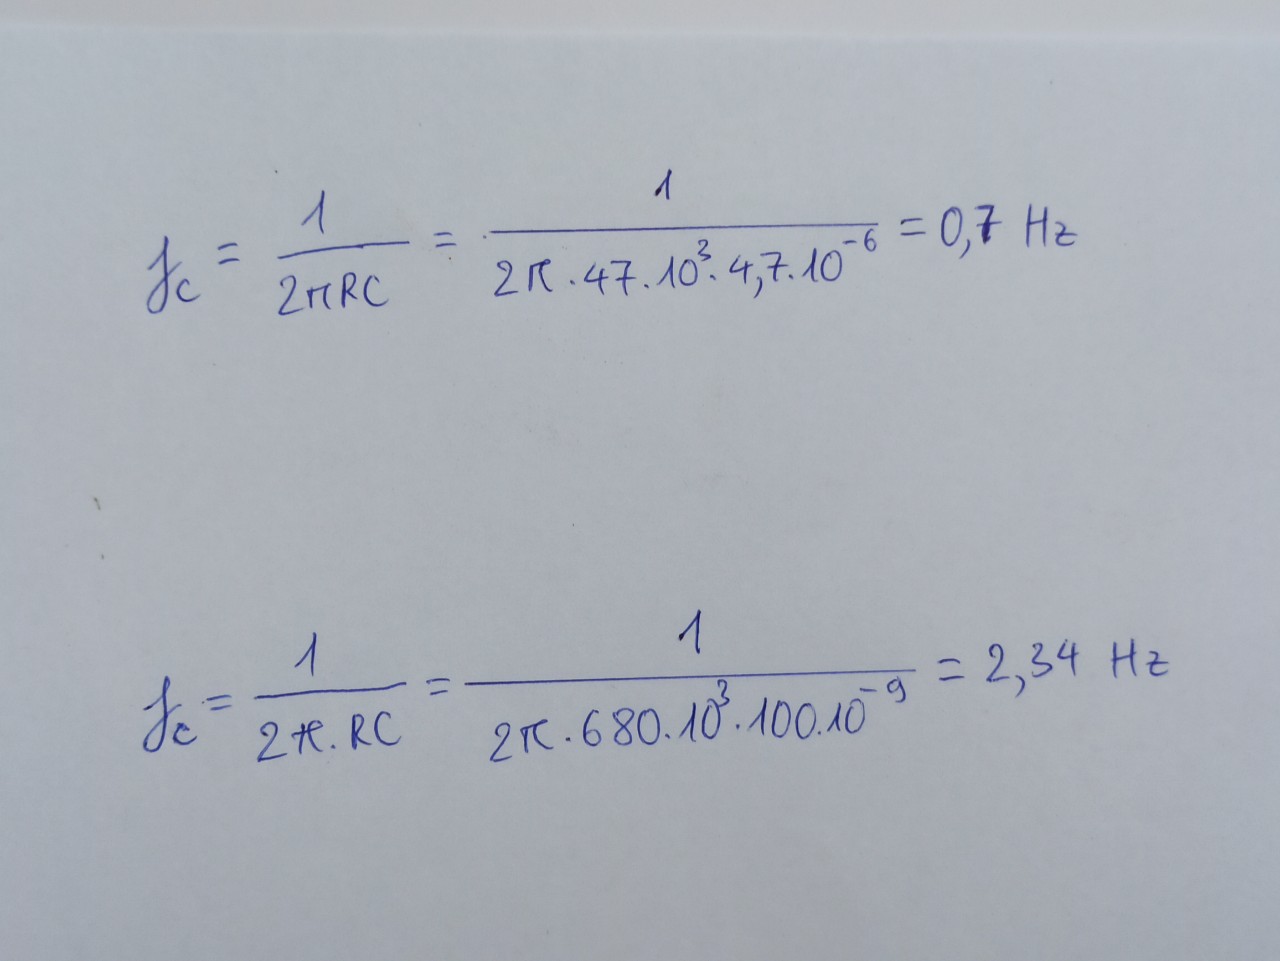 f_c = 1/(2πRC) = 1/(2π·47·10³·4,7·10⁻⁶) = 0,7 Hz
f_c = 1/(2π·RC) = 1/(2π·680·10³·100·10⁻⁹) = 2,34 Hz